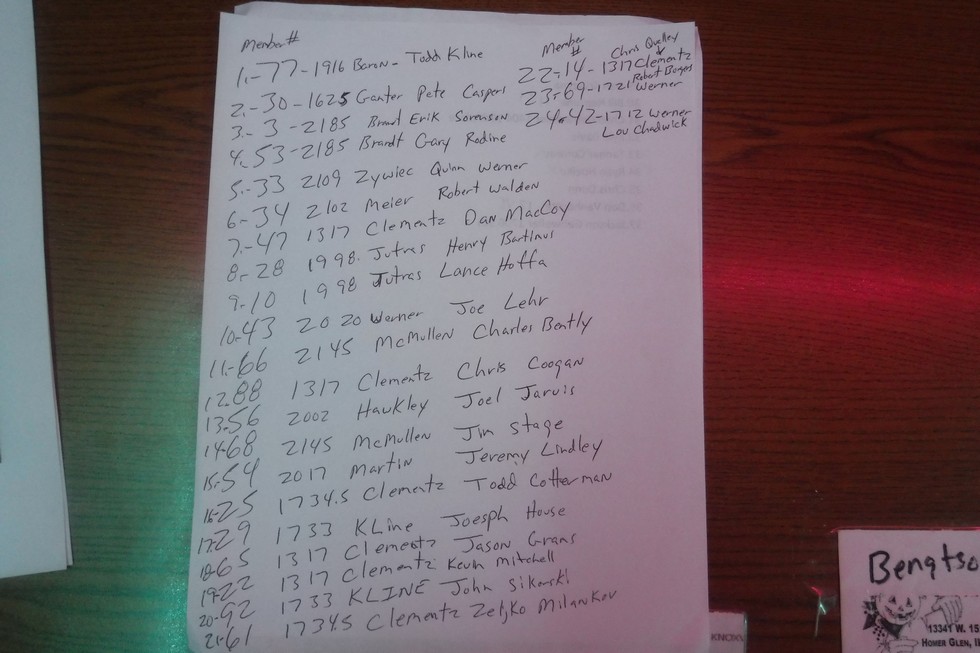 Member #
1.-77-1916 Baron- Todd Kline
2.-30-1625 Ganter Pete Caspers
3.- 3 -2185 Brandt Erik Sorenson
4.-53-2185 Brandt Gary Rodine
5.-33 2109 Zywiec Quinn Werner
6-34 2102 Meier Robert Walden
7.-47 1317 Clementz Dan MacCoy
8.-28 1998. Jutras Henry Bartlaus
9.-10 1998 Jutras Lance Hoffa
10-43 2020 Werner Joe Lehr
11.-66 2145 McMullen Charles Bently
12.88 1317 Clementz Chris Coogan
13.56 2002 Hawkley Joel Jarvis
14-68 2145 McMullen Jim Stage
15-54 2017 Martin Jeremy Lindley
16-25 1734.5 Clementz Todd Cotterman
17-29 1733 KLine Joesph House
18-65 1317 Clementz Jason Grans
19-22 1317 Clementz Kevin Mitchell
20-92 1733 KLINE John Sikorski
21-61 1734.5 Clementz Zeljko Milankov
Member
#
Chris Quelley
22.-14-1317 Clementz
Robert Borgers
23-69-1721 Werner
24-42-1712 Werner
Lou Chadwick
KNOXV
Bengtso
13341 W. 15
HOMER GLEN, I